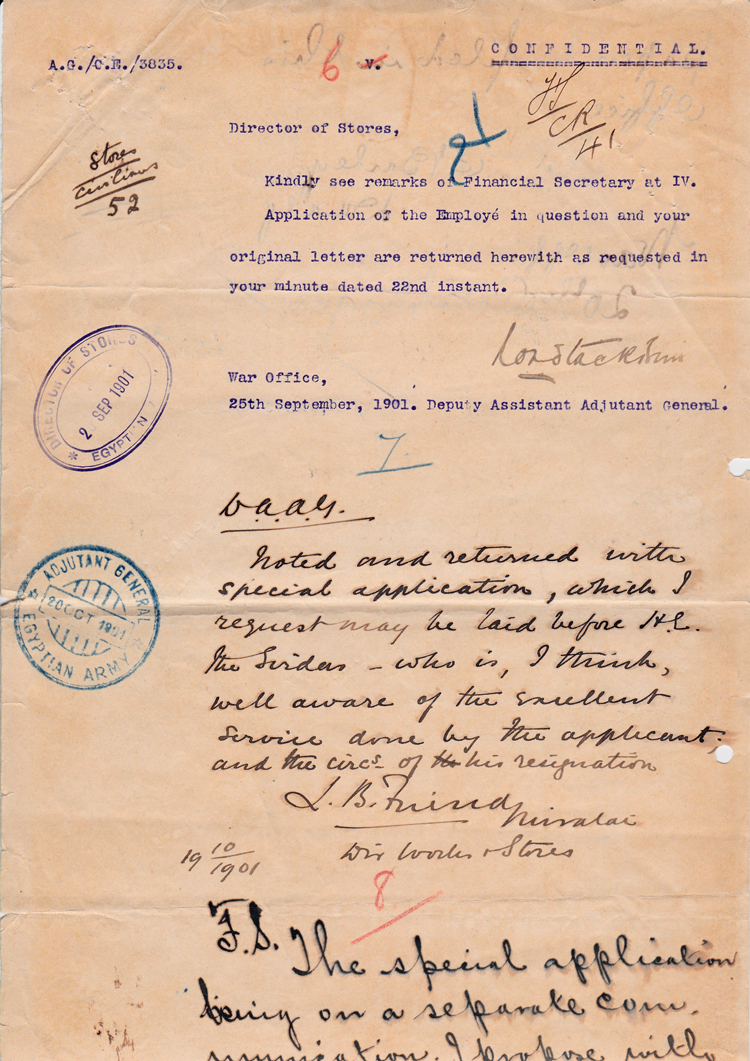 A.G./C.E./3835.
6 v.
CONFIDENTIAL.
Stores
civilians
52
CR
41
Director of Stores,
Kindly see remarks of Financial Secretary at IV.
Application of the Employé in question and your
original letter are returned herewith as requested in
your minute dated 22nd instant.
War Office,
25th September, 1901. Deputy Assistant Adjutant General.
DIRECTOR OF STORES
2 SEP 1901
EGYPTIAN
7.
D.A.A.G.
Noted and returned with
special application, which I
request may be laid before H.E.
the Sirdar – who is, I think,
well aware of the excellent
service done by the applicant.
and the circs. of his resignation
L. B. Friend
Miralai
Dir Works & Stores
19 10/1901
ADJUTANT GENERAL
20 OCT 1901
EGYPTIAN ARMY
8
F.S. The special application
being on a separate com-
munication, I propose with